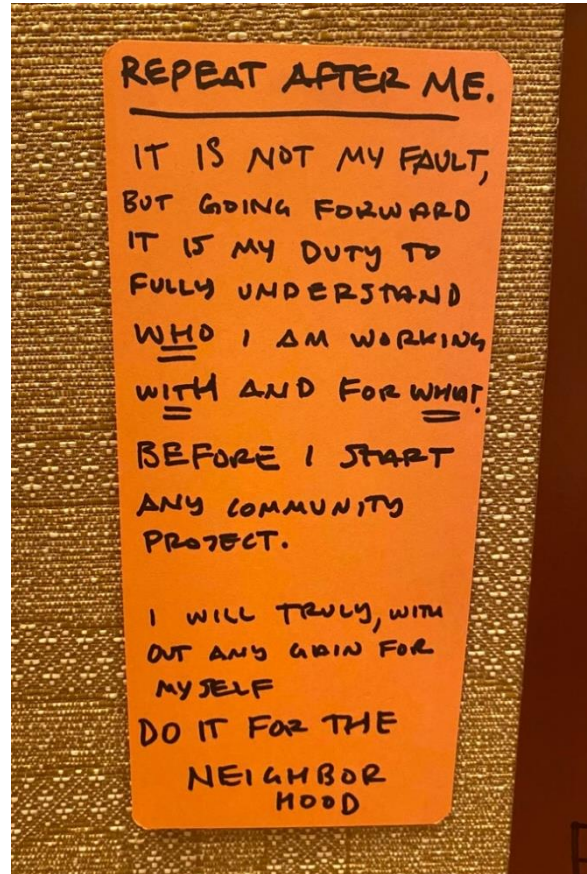 REPEAT AFTER ME.
IT IS NOT MY FAULT,
BUT GOING FORWARD
IT IS MY DUTY TO
FULLY UNDERSTAND
WHO I AM WORKING
WITH AND FOR WHAT.
BEFORE I START
ANY COMMUNITY
PROJECT.
I WILL TRULY, WITH
OUT ANY GAIN FOR
MYSELF
DO IT FOR THE
NEIGHBOR
HOOD